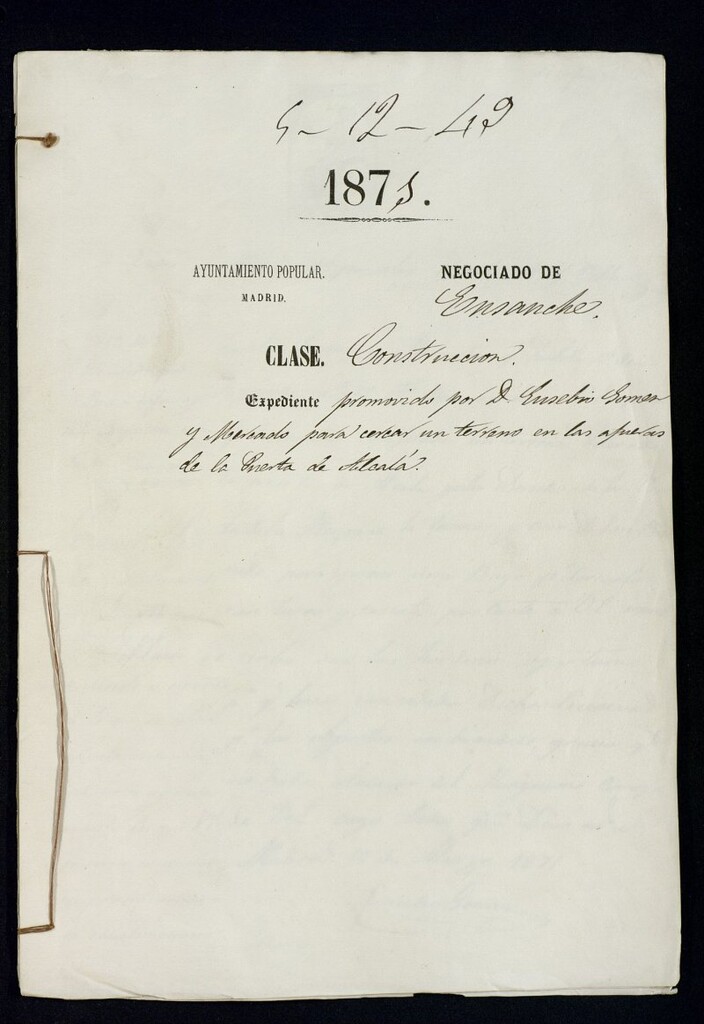 5-12-49
1871.
AYUNTAMIENTO POPULAR.
MADRID.
NEGOCIADO DE
Ensanche.
CLASE. Construccion.
Expediente promovido por D. Eusebio Gomez
y Mercado para cercar un terreno en las afueras
de la Puerta de Alcalá.